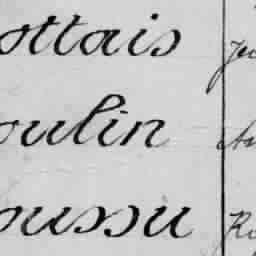 ottais
oulin
oussu